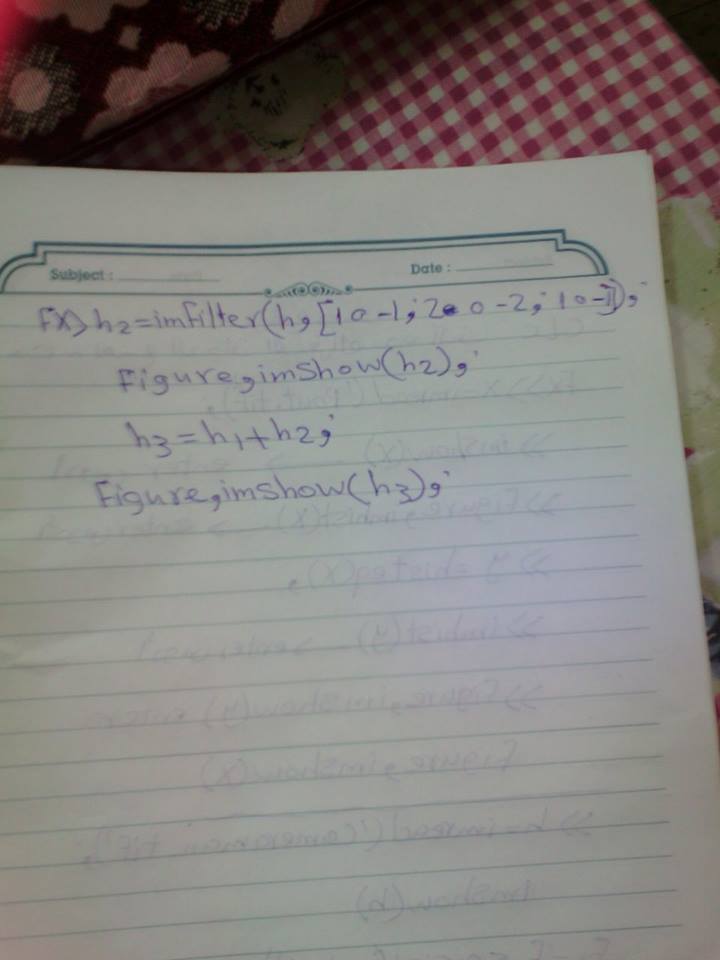 Subject :
Date :
fx>> h2=imfilter(h,[1 0 -1; 2 0 -2; 1 0 -1]);
Figure,imshow(h2);
h3=h1+h2;
Figure,imshow(h3);